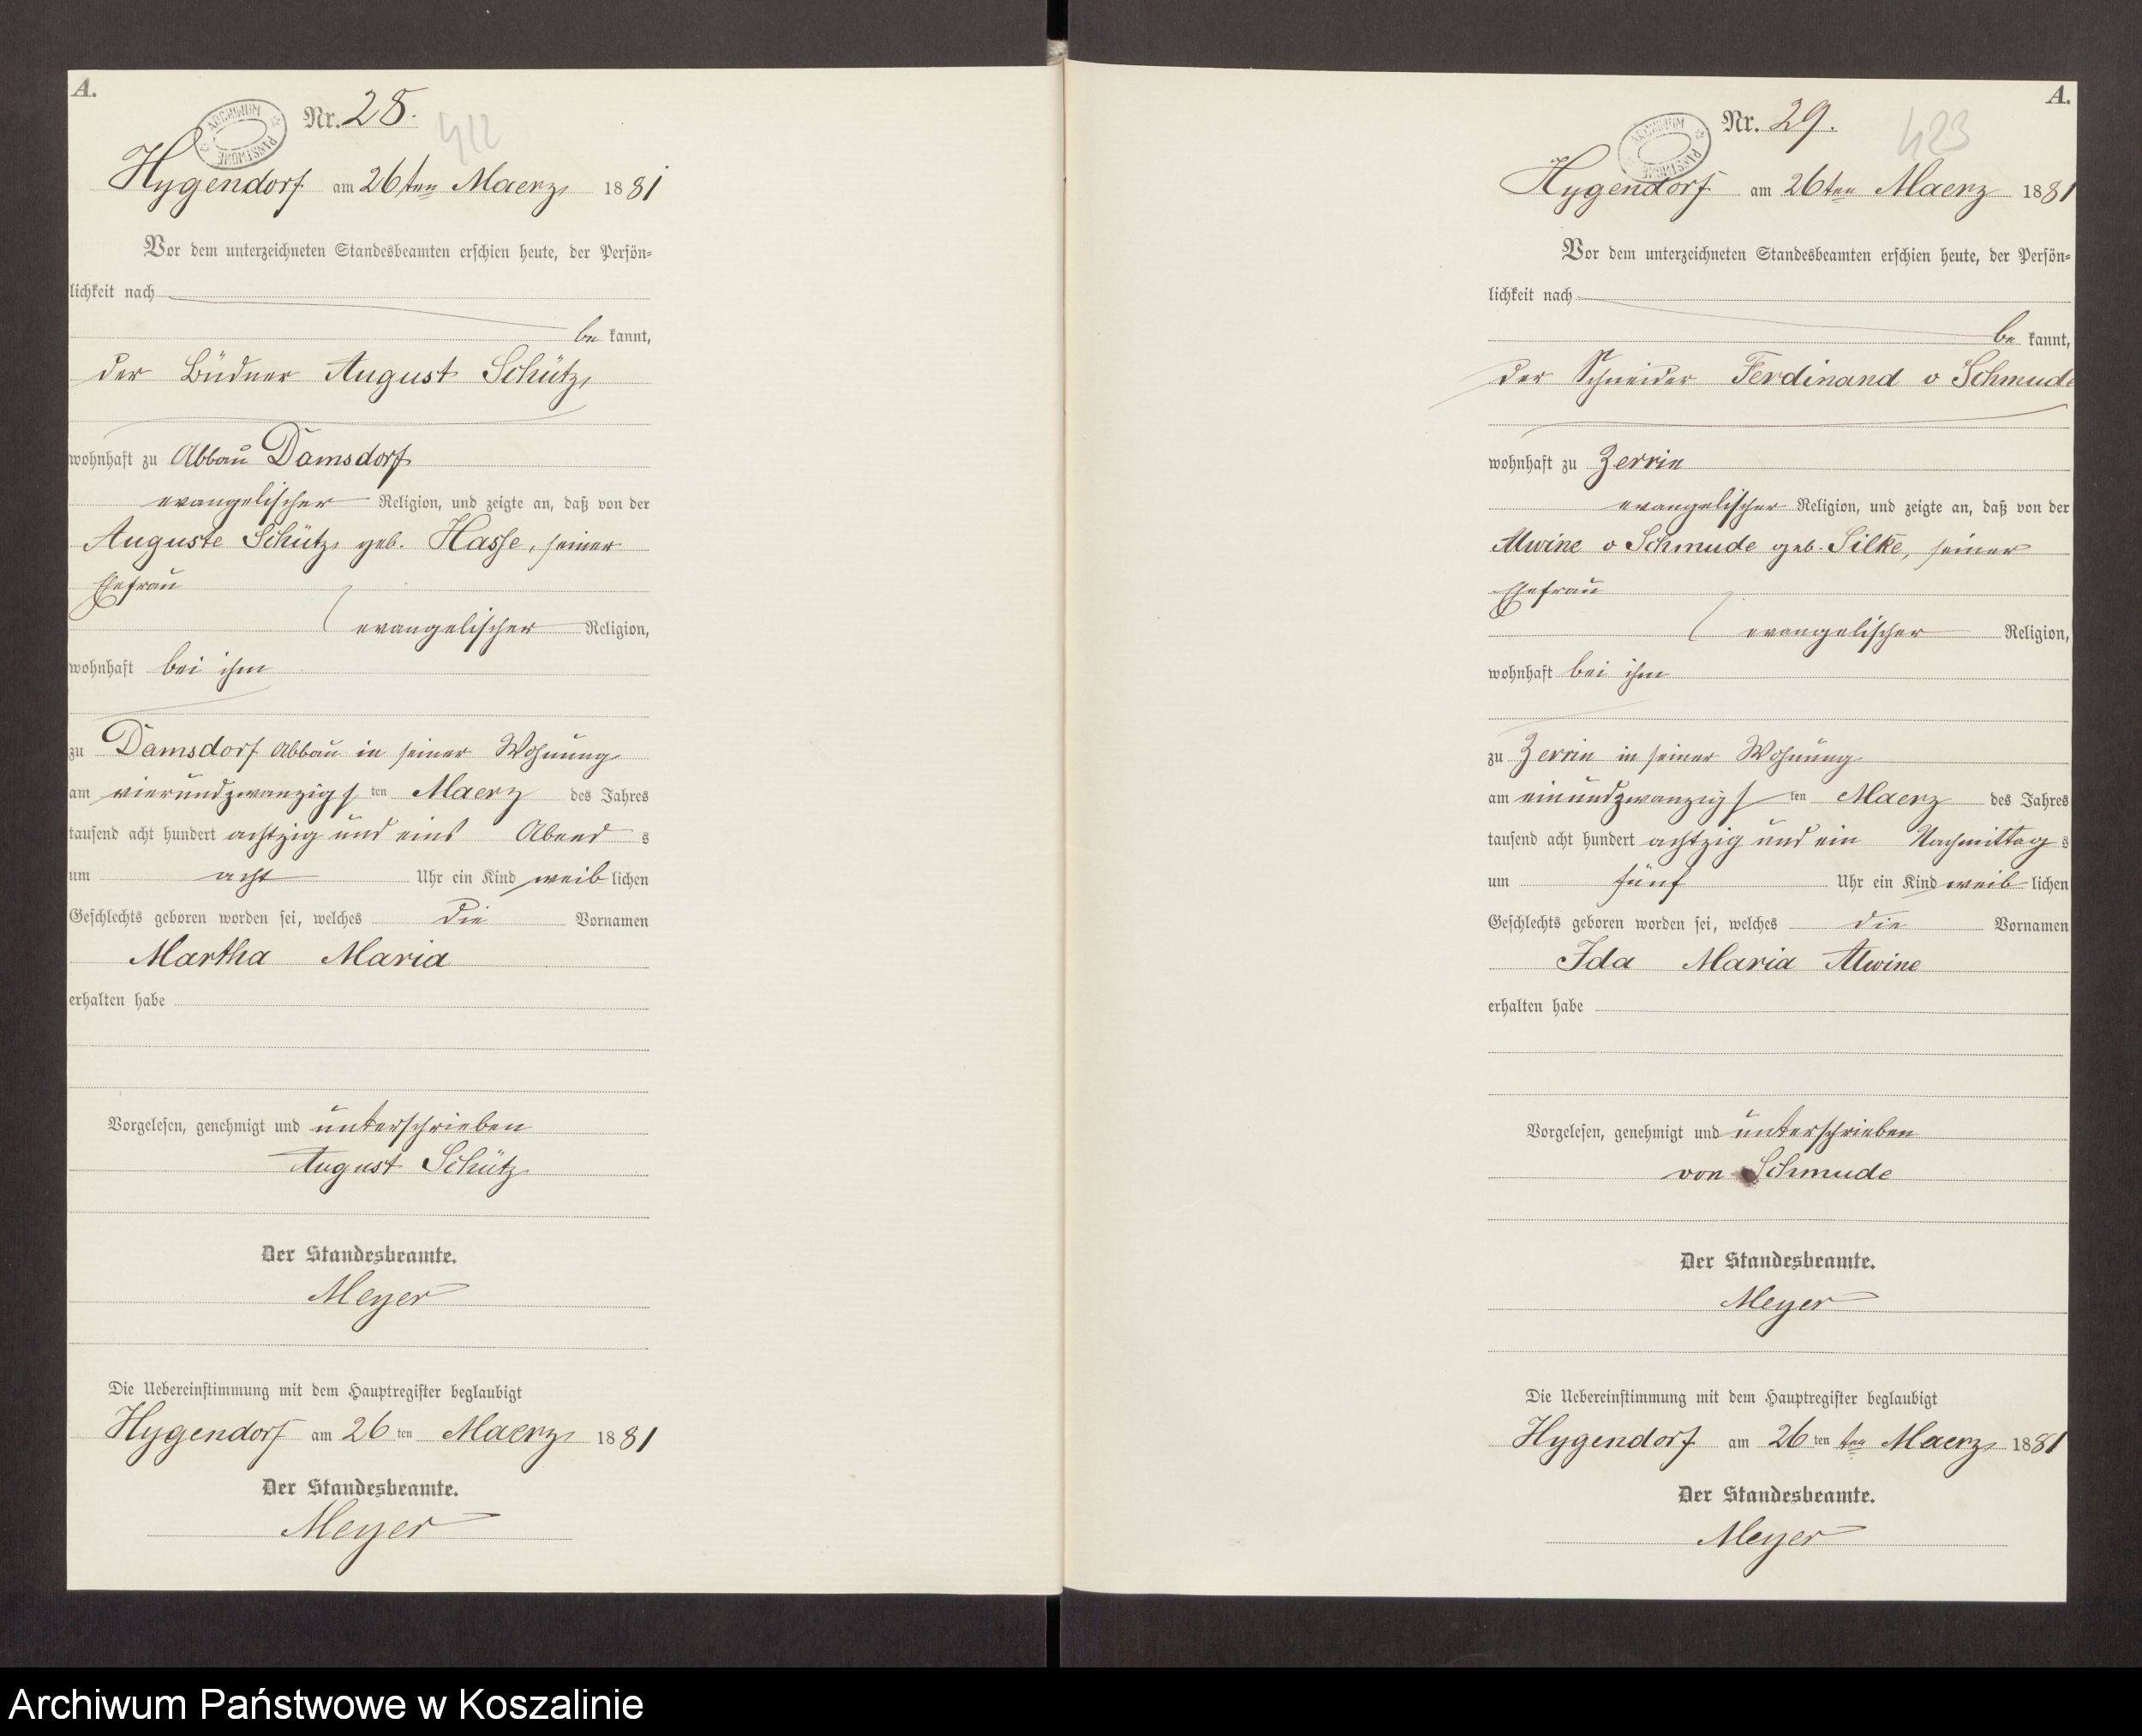 A.
ARCHIWUM PAŃSTWOWE
Nr. 28.
Hygendorf am 26ten Maerz 1881
Vor dem unterzeichneten Standesbeamten erschien heute, der Persön-
lichkeit nach
be kannt,
der Büdner August Schütz
wohnhaft zu Abbau Damsdorf
evangelischer Religion, und zeigte an, daß von der
Auguste Schütz geb. Hasse, seiner
Ehefrau
evangelischer Religion,
wohnhaft bei ihm
zu Damsdorf Abbau in seiner Wohnung
am vierundzwanzigsten Maerz des Jahres
tausend acht hundert achtzig und eins Abend s
um acht Uhr ein Kind weib lichen
Geschlechts geboren worden sei, welches die Vornamen
Martha Maria
erhalten habe
Vorgelesen, genehmigt und unterschrieben
August Schütz
Der Standesbeamte.
Meyer
Die Uebereinstimmung mit dem Hauptregister beglaubigt
Hygendorf am 26 ten Maerz 1881
Der Standesbeamte.
Meyer
A.
ARCHIWUM PAŃSTWOWE
Nr. 29.
423
Hygendorf am 26ten Maerz 1881
Vor dem unterzeichneten Standesbeamten erschien heute, der Persön-
lichkeit nach
be kannt,
der Schneider Ferdinand v Schmude
wohnhaft zu Zerrin
evangelischer Religion, und zeigte an, daß von der
Alwine v Schmude geb. Silke, seiner
Ehefrau
evangelischer Religion,
wohnhaft bei ihm
zu Zerrin in seiner Wohnung
am einundzwanzigsten Maerz des Jahres
tausend acht hundert achtzig und ein Nachmittag s
um fünf Uhr ein Kind weib lichen
Geschlechts geboren worden sei, welches die Vornamen
Ida Maria Alwine
erhalten habe
Vorgelesen, genehmigt und unterschrieben
von Schmude
Der Standesbeamte.
Meyer
Die Uebereinstimmung mit dem Hauptregister beglaubigt
Hygendorf am 26 ten ten Maerz 1881
Der Standesbeamte.
Meyer
Archiwum Państwowe w Koszalinie